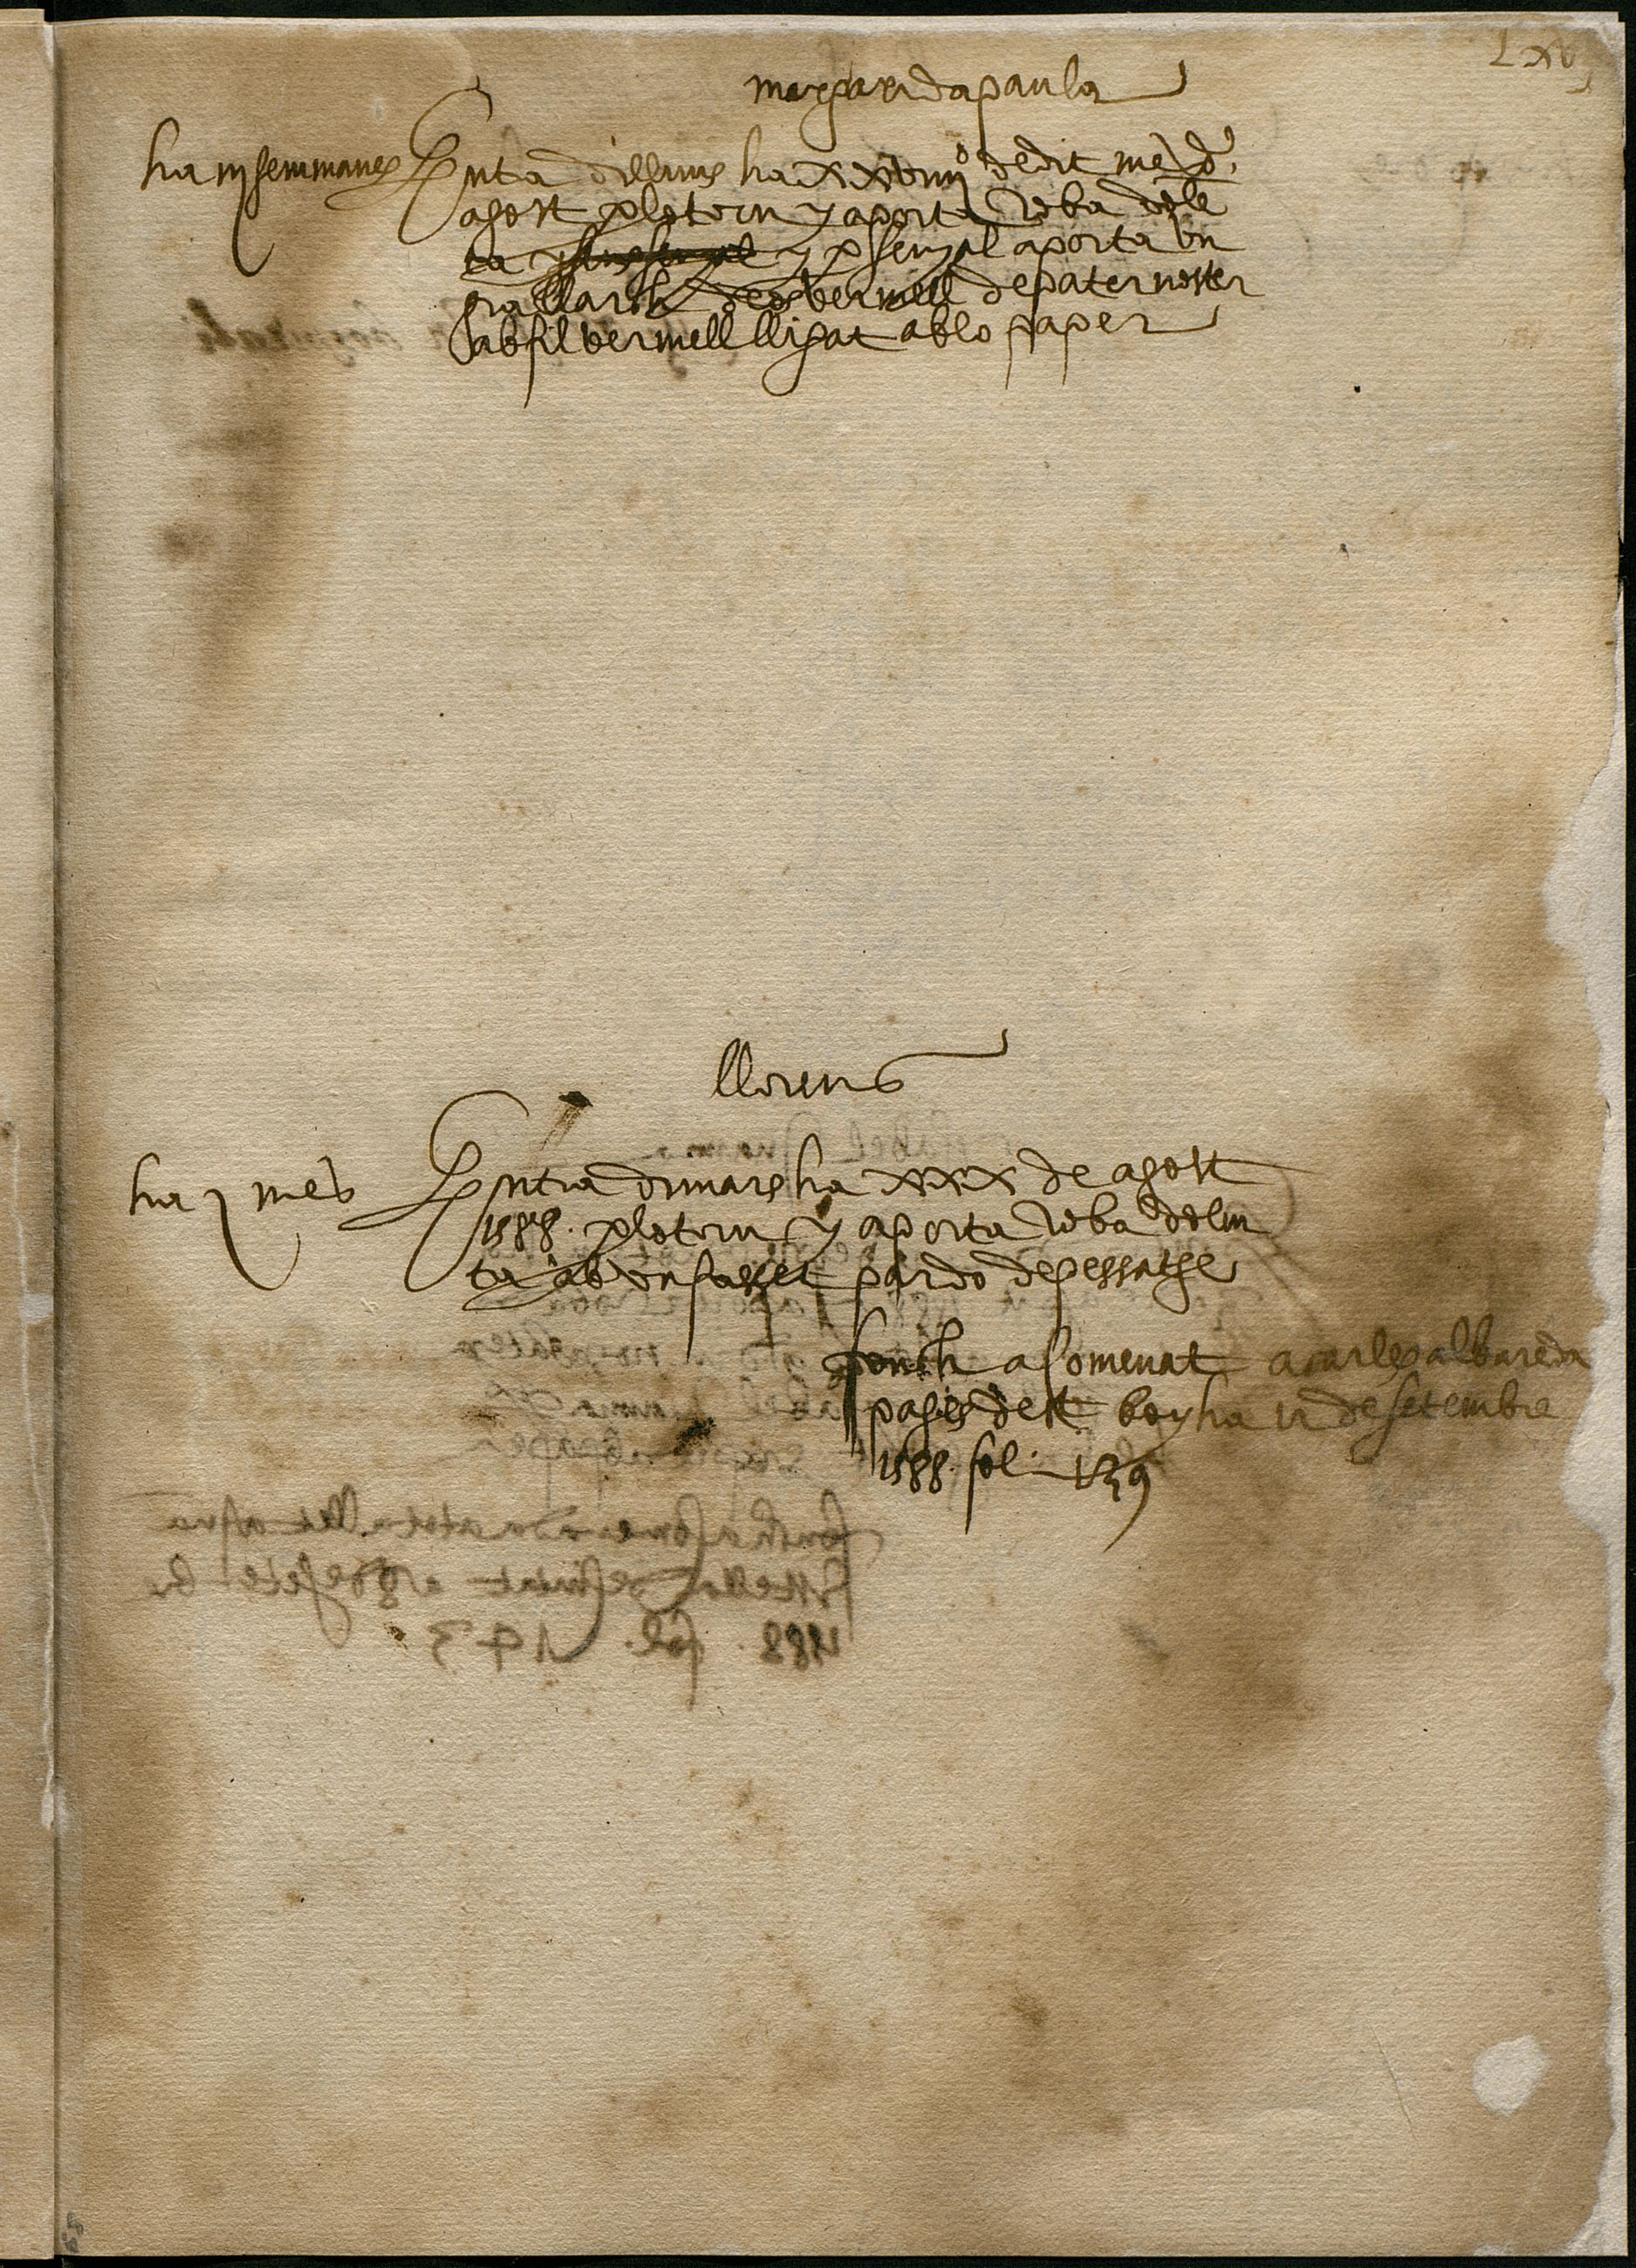 Lxvj
margarida paula
ha iij semmanes Entra dilluns ha xxviiij dedit mes d.
agost p lo torn y aporta roba dole
ta y p senyal aporta un
gra llarch de os vermell de paternoster
ab fil vermell lligat ab lo paper
llorens
ha j mes Entra dimars ha xxx de agost
1588. p lo torn y aporta roba dolen
ta ab un fasset pardo de pessatge
fonch acomenat a carles albareda
pages de st boy ha 12 de setembre
1588. fol. 139